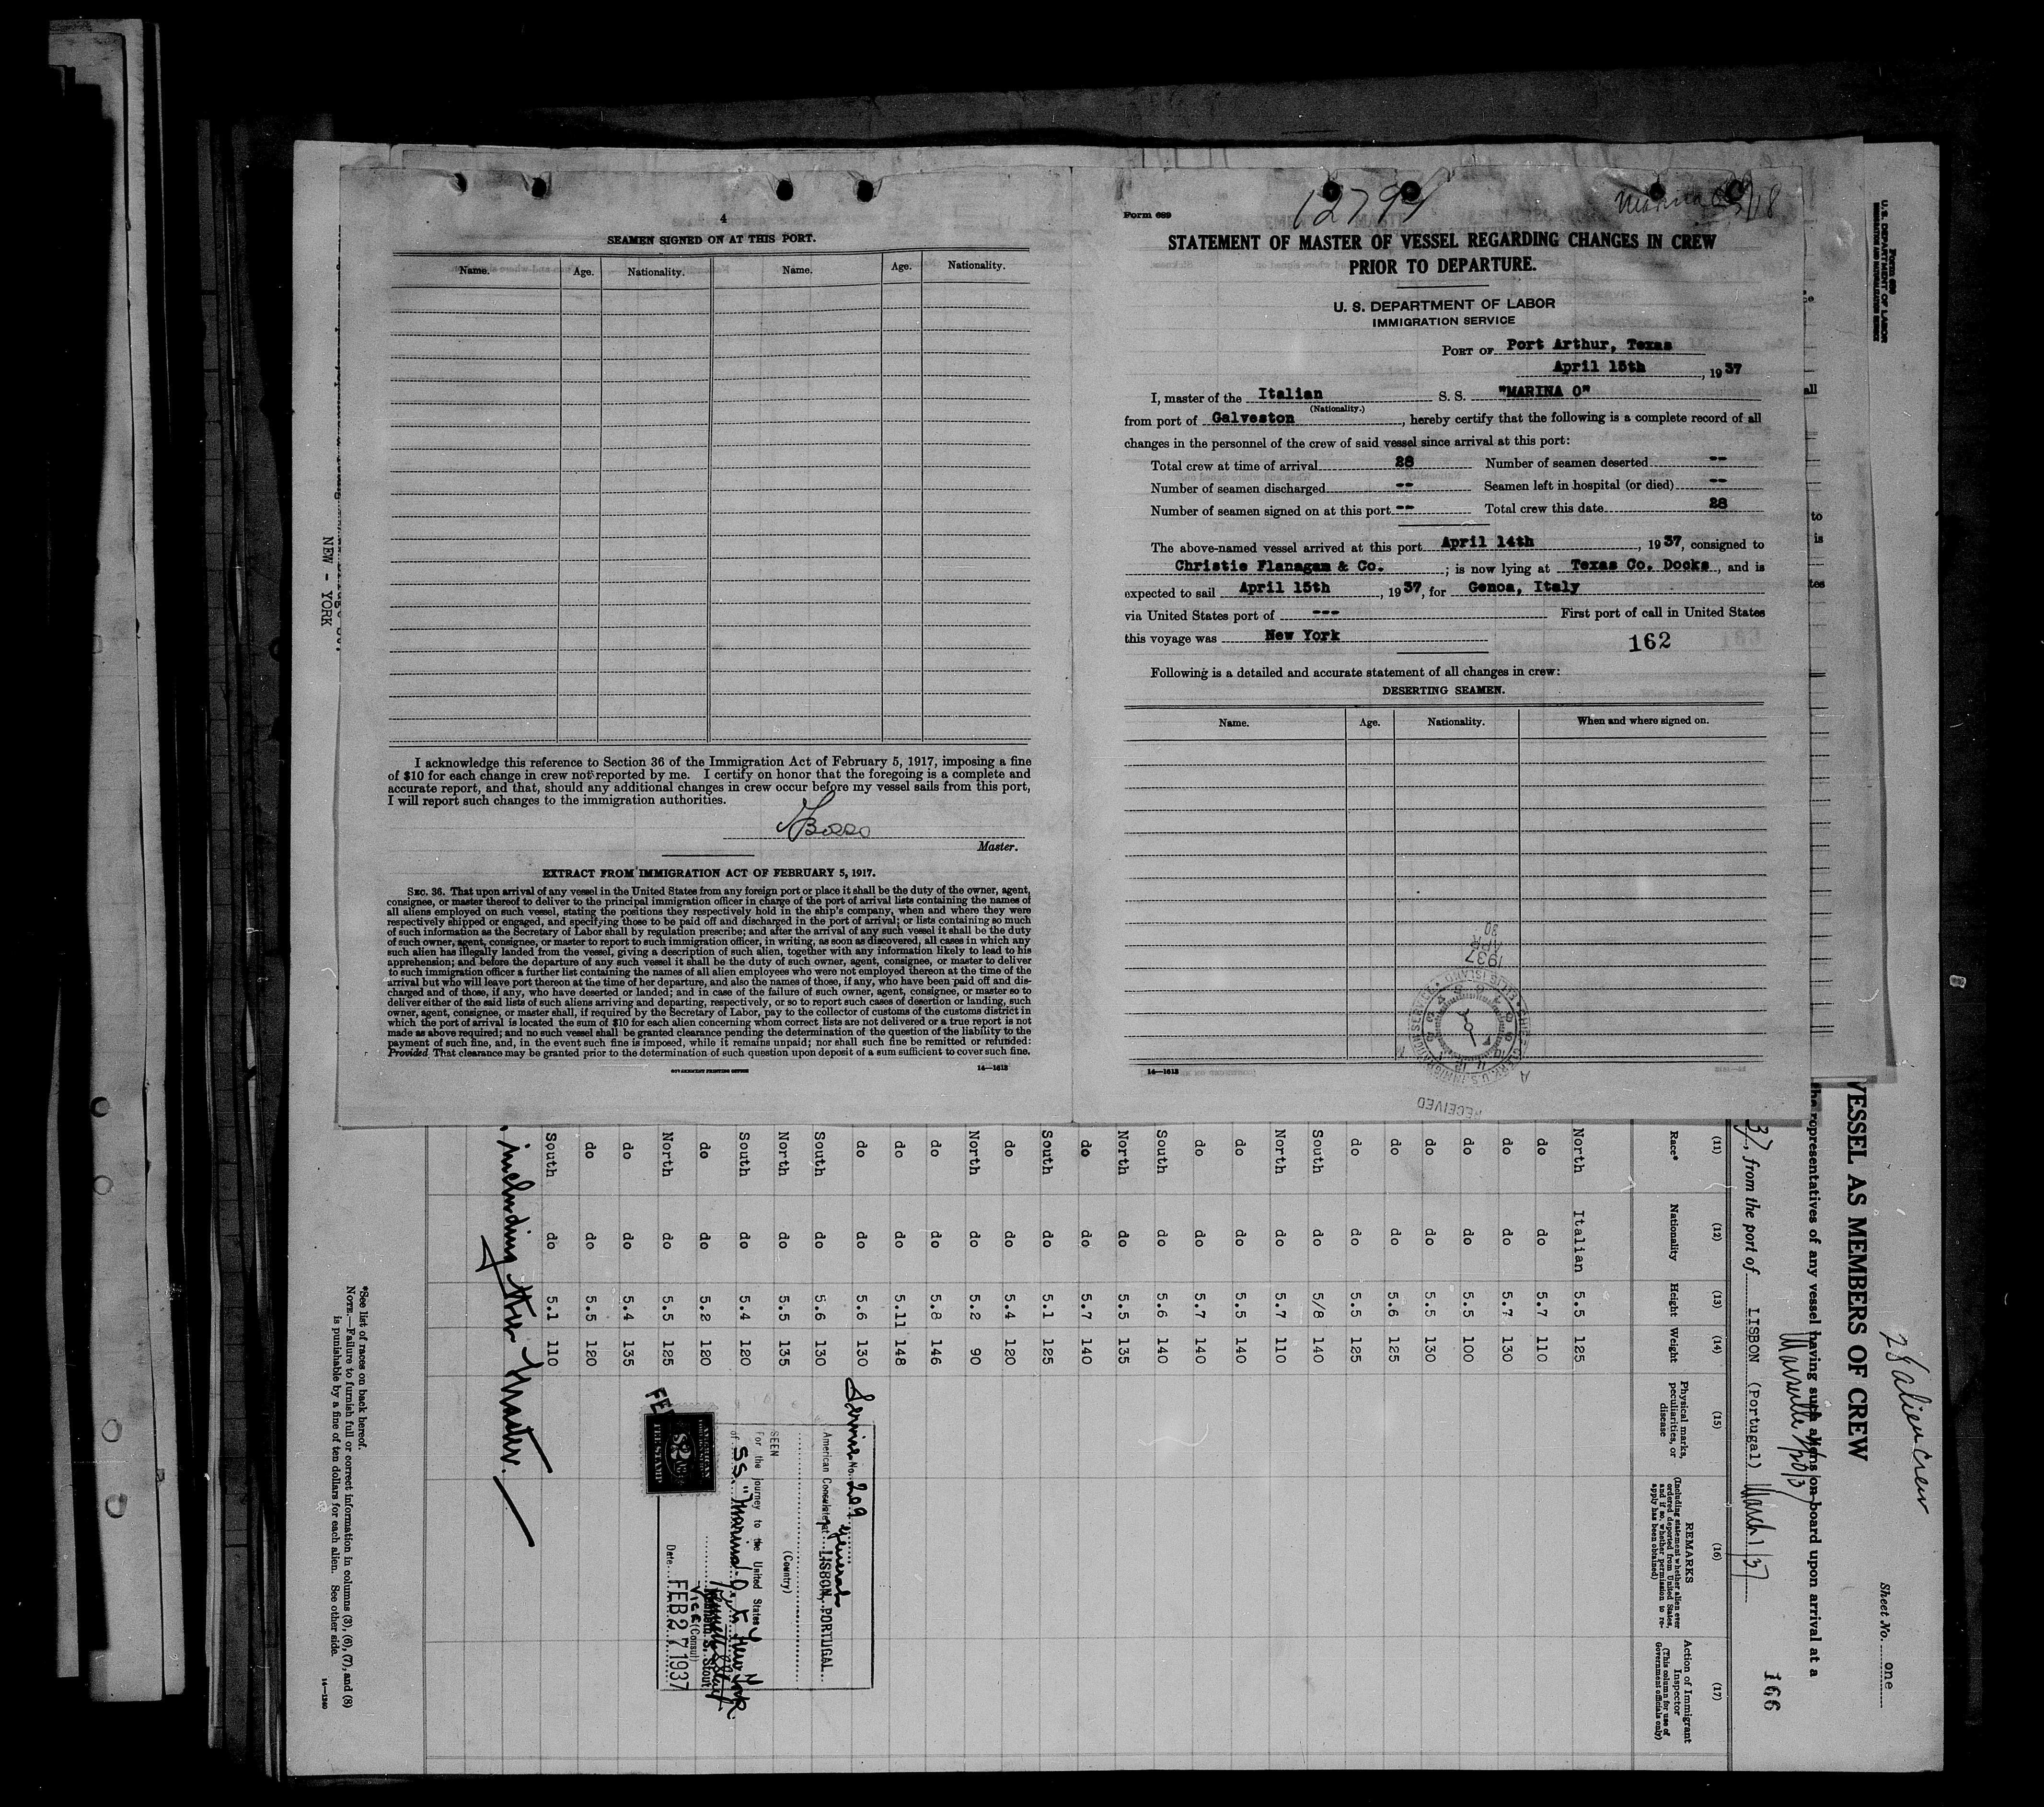 4
SEAMEN SIGNED ON AT THIS PORT.
Name. Age. Nationality. Name. Age. Nationality.
I acknowledge this reference to Section 36 of the Immigration Act of February 5, 1917, imposing a fine
of $10 for each change in crew not reported by me. I certify on honor that the foregoing is a complete and
accurate report, and that, should any additional changes in crew occur before my vessel sails from this port,
I will report such changes to the immigration authorities.
Master.
EXTRACT FROM IMMIGRATION ACT OF FEBRUARY 5, 1917.
SEC. 36. That upon arrival of any vessel in the United States from any foreign port or place it shall be the duty of the owner, agent,
consignee, or master thereof to deliver to the principal immigration officer in charge of the port of arrival lists containing the names of
all aliens employed on such vessel, stating the positions they respectively hold in the ship's company, when and where they were
respectively shipped or engaged, and specifying those to be paid off and discharged in the port of arrival; or lists containing so much
of such information as the Secretary of Labor shall by regulation prescribe; and after the arrival of any such vessel it shall be the duty
of such owner, agent, consignee, or master to report to such immigration officer, in writing, as soon as discovered, all cases in which any
such alien has illegally landed from the vessel, giving a description of such alien, together with any information likely to lead to his
apprehension; and before the departure of any such vessel it shall be the duty of such owner, agent, consignee, or master to deliver
to such immigration officer a further list containing the names of all alien employees who were not employed thereon at the time of the
arrival but who will leave port thereon at the time of her departure, and also the names of those, if any, who have been paid off and dis-
charged and of those, if any, who have deserted or landed; and in case of the failure of such owner, agent, consignee, or master so to
deliver either of the said lists of such aliens arriving and departing, respectively, or so to report such cases of desertion or landing, such
owner, agent, consignee, or master shall, if required by the Secretary of Labor, pay to the collector of customs of the customs district in
which the port of arrival is located the sum of $10 for each alien concerning whom correct lists are not delivered or a true report is not
made as above required; and no such vessel shall be granted clearance pending the determination of the question of the liability to the
payment of such fine, and, in the event such fine is imposed, while it remains unpaid; nor shall such fine be remitted or refunded:
Provided That clearance may be granted prior to the determination of such question upon deposit of a sum sufficient to cover such fine.
GOVERNMENT PRINTING OFFICE 14—1613
NEW - YORK
Form 689
STATEMENT OF MASTER OF VESSEL REGARDING CHANGES IN CREW
PRIOR TO DEPARTURE.
U. S. DEPARTMENT OF LABOR
IMMIGRATION SERVICE
PORT OF Port Arthur, Texas
April 15th, 1937
I, master of the Italian S. S. "MARINA O"
(Nationality.)
from port of Galveston, hereby certify that the following is a complete record of all
changes in the personnel of the crew of said vessel since arrival at this port:
Total crew at time of arrival 28 Number of seamen deserted --
Number of seamen discharged -- Seamen left in hospital (or died) --
Number of seamen signed on at this port -- Total crew this date 28
The above-named vessel arrived at this port April 14th, 1937, consigned to
Christie Flanagan & Co.; is now lying at Texas Co. Docks, and is
expected to sail April 15th, 1937, for Genoa, Italy
via United States port of --- First port of call in United States
this voyage was New York
162
Following is a detailed and accurate statement of all changes in crew:
DESERTING SEAMEN.
Name. Age. Nationality. When and where signed on.
1937
APR
30
RECEIVED
14—1613
Form 689
U. S. DEPARTMENT OF LABOR
28 alien crew
Sheet No. one
VESSEL AS MEMBERS OF CREW
the representatives of any vessel having such aliens on board upon arrival at a
37, from the port of LISBON (Portugal) March 1/37
166
(11) (12) (13) (14) (15) (16) (17)
Race* Nationality Height Weight
Physical marks, peculiarities, or disease
REMARKS
(Including statement whether alien ever ordered deported from United States, and if so, whether permission to re-apply has been obtained)
Action of Immigrant Inspector
(This column for use of Government officials only)
North Italian 5.5 125
do do 5.7 110
do do 5.7 130
do do 5.5 100
do do 5.5 130
do do 5.6 125
do do 5.5 125
South do 5/8 140
North do 5.7 110
do do 5.5 140
do do 5.7 140
South do 5.6 140
North do 5.5 135
do do 5.7 140
South do 5.1 125
do do 5.4 120
North do 5.2 90
do do 5.8 146
do do 5.11 148
do do 5.6 130
South do 5.6 130
North do 5.5 135
South do 5.4 120
do do 5.2 120
North do 5.5 125
do do 5.4 135
do do 5.5 120
South do 5.1 110
including the Master.
Service No. 209
American Consulate General
LISBON, PORTUGAL
(Country)
SEEN
For the journey to the United States
of SS. "Marina O" to New York.
Kenneth S. Stout
Vice (Consul)
Date FEB 27 1937
AMERICAN
FEE STAMP
*See list of races on back hereof.
NOTE.—Failure to furnish full or correct information in columns (3), (6), (7), and (8)
is punishable by a fine of ten dollars for each alien. See other side.
14—1240